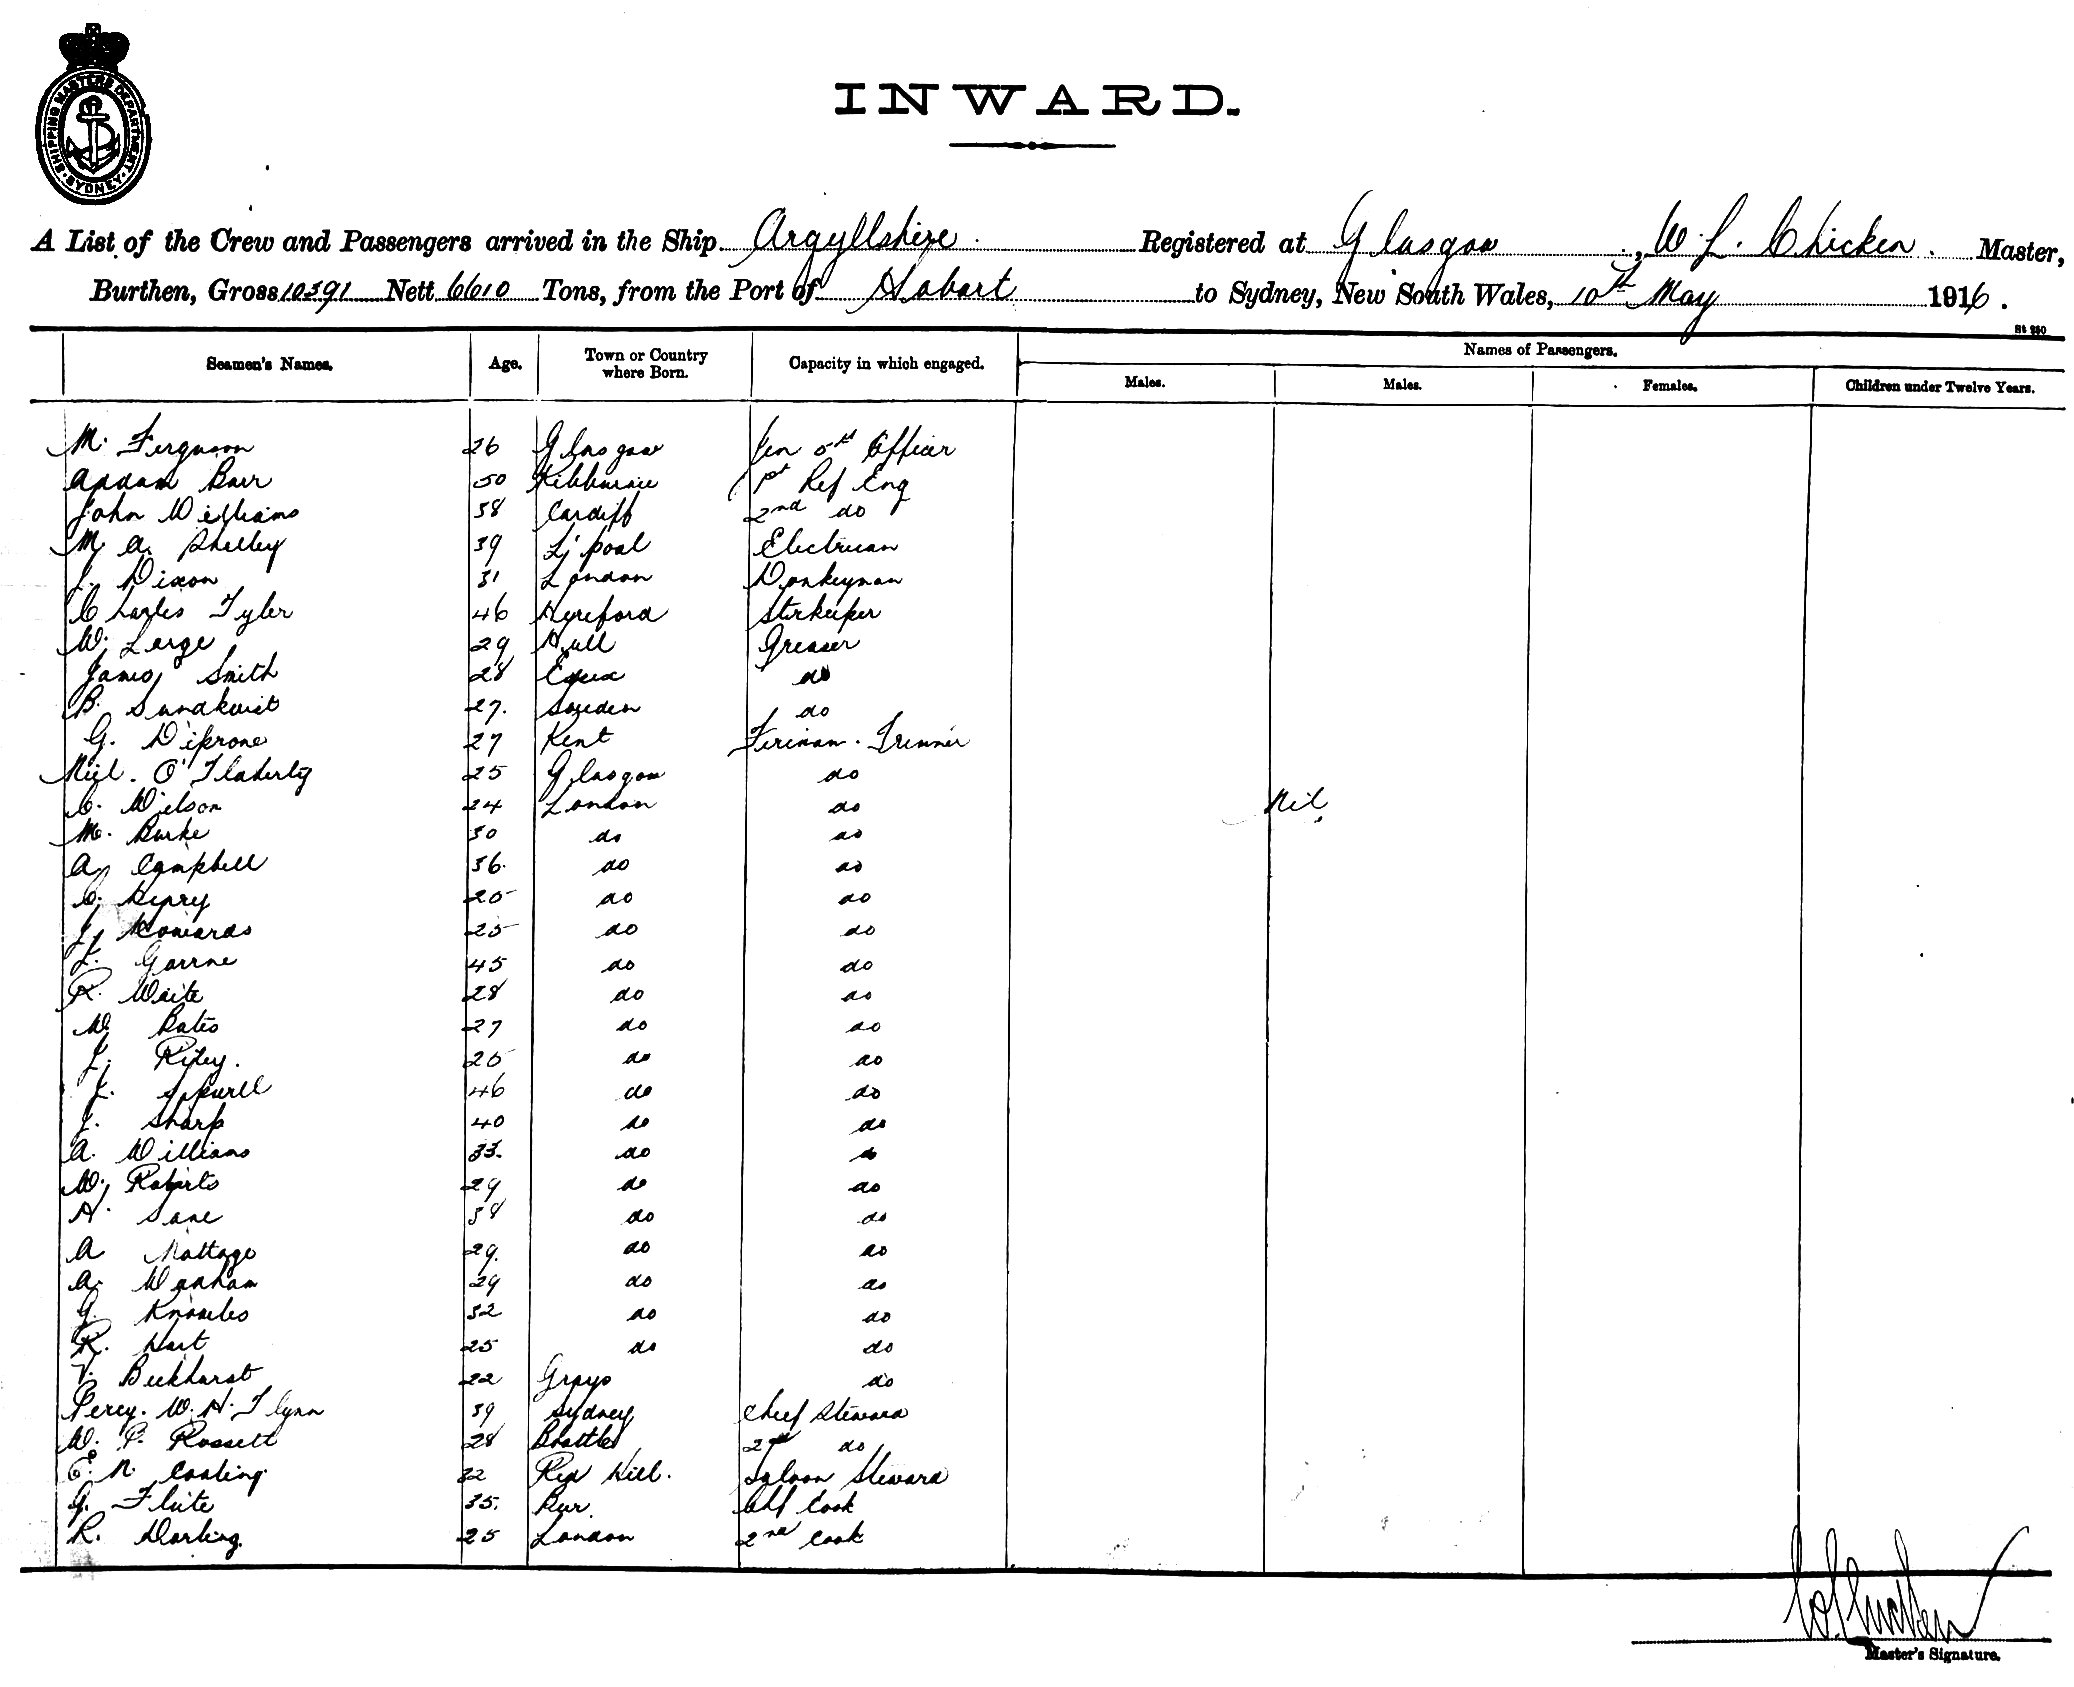 SHIPPING MASTERS DEPARTMENT · SYDNEY ·
INWARD.
A List of the Crew and Passengers arrived in the Ship Argyllshire Registered at Glasgow, W. L. Chicken. Master,
Burthen, Gross 10391 Nett 6610 Tons, from the Port of Hobart to Sydney, New South Wales, 10th May 1916.
St 250
Seamen's Names. Age. Town or Country where Born. Capacity in which engaged. Names of Passengers.
Males. Males. Females. Children under Twelve Years.
M. Ferguson 26 Glasgow Jun 5th Officer
Addam Barr 50 Kilburnie 1st Ref Eng
John Williams 38 Cardiff 2nd do
M. A. Shelley 39 L'pool Electrician
J. Dixon 31 London Donkeyman
Charles Tyler 46 Hereford Storekeeper
W. Large 29 Hull Greaser
James Smith 28 Essex do
B. Sundkvist 27. Sweden do
G. Diprone 27 Kent Fireman. Trimmer
Migl. O'Flaherty 25 Glasgow do
C. Wilson 24 London do Nil
M. Burke 30 do do
A. Campbell 36. do do
C. Henry 25 do do
J. Edwards 25 do do
45 do do
R. Waite 28 do do
W. Bates 27 do do
J. Riley. 25 do do
J. Spurell 46 do do
J. Sharp 40 do do
A. Williams 33. do do
W. Roberts 29 do do
H. Lane 38 do do
A Nattage 29. do do
A. Wenham 29 do do
G. Knowles 32 do do
R. Hart 25 do do
V. Beckhurst 22 Grays do
Percy. W. H. Flynn 39 Sydney Chief Steward
W. P. Russell 28 Bootle 2nd do
E. N. Cooling. 32 Red Hill. Saloon Steward
G. Flute 35. Chf Cook
R. Darling. 25 London 2nd Cook
W. L. Chicken
Master's Signature.